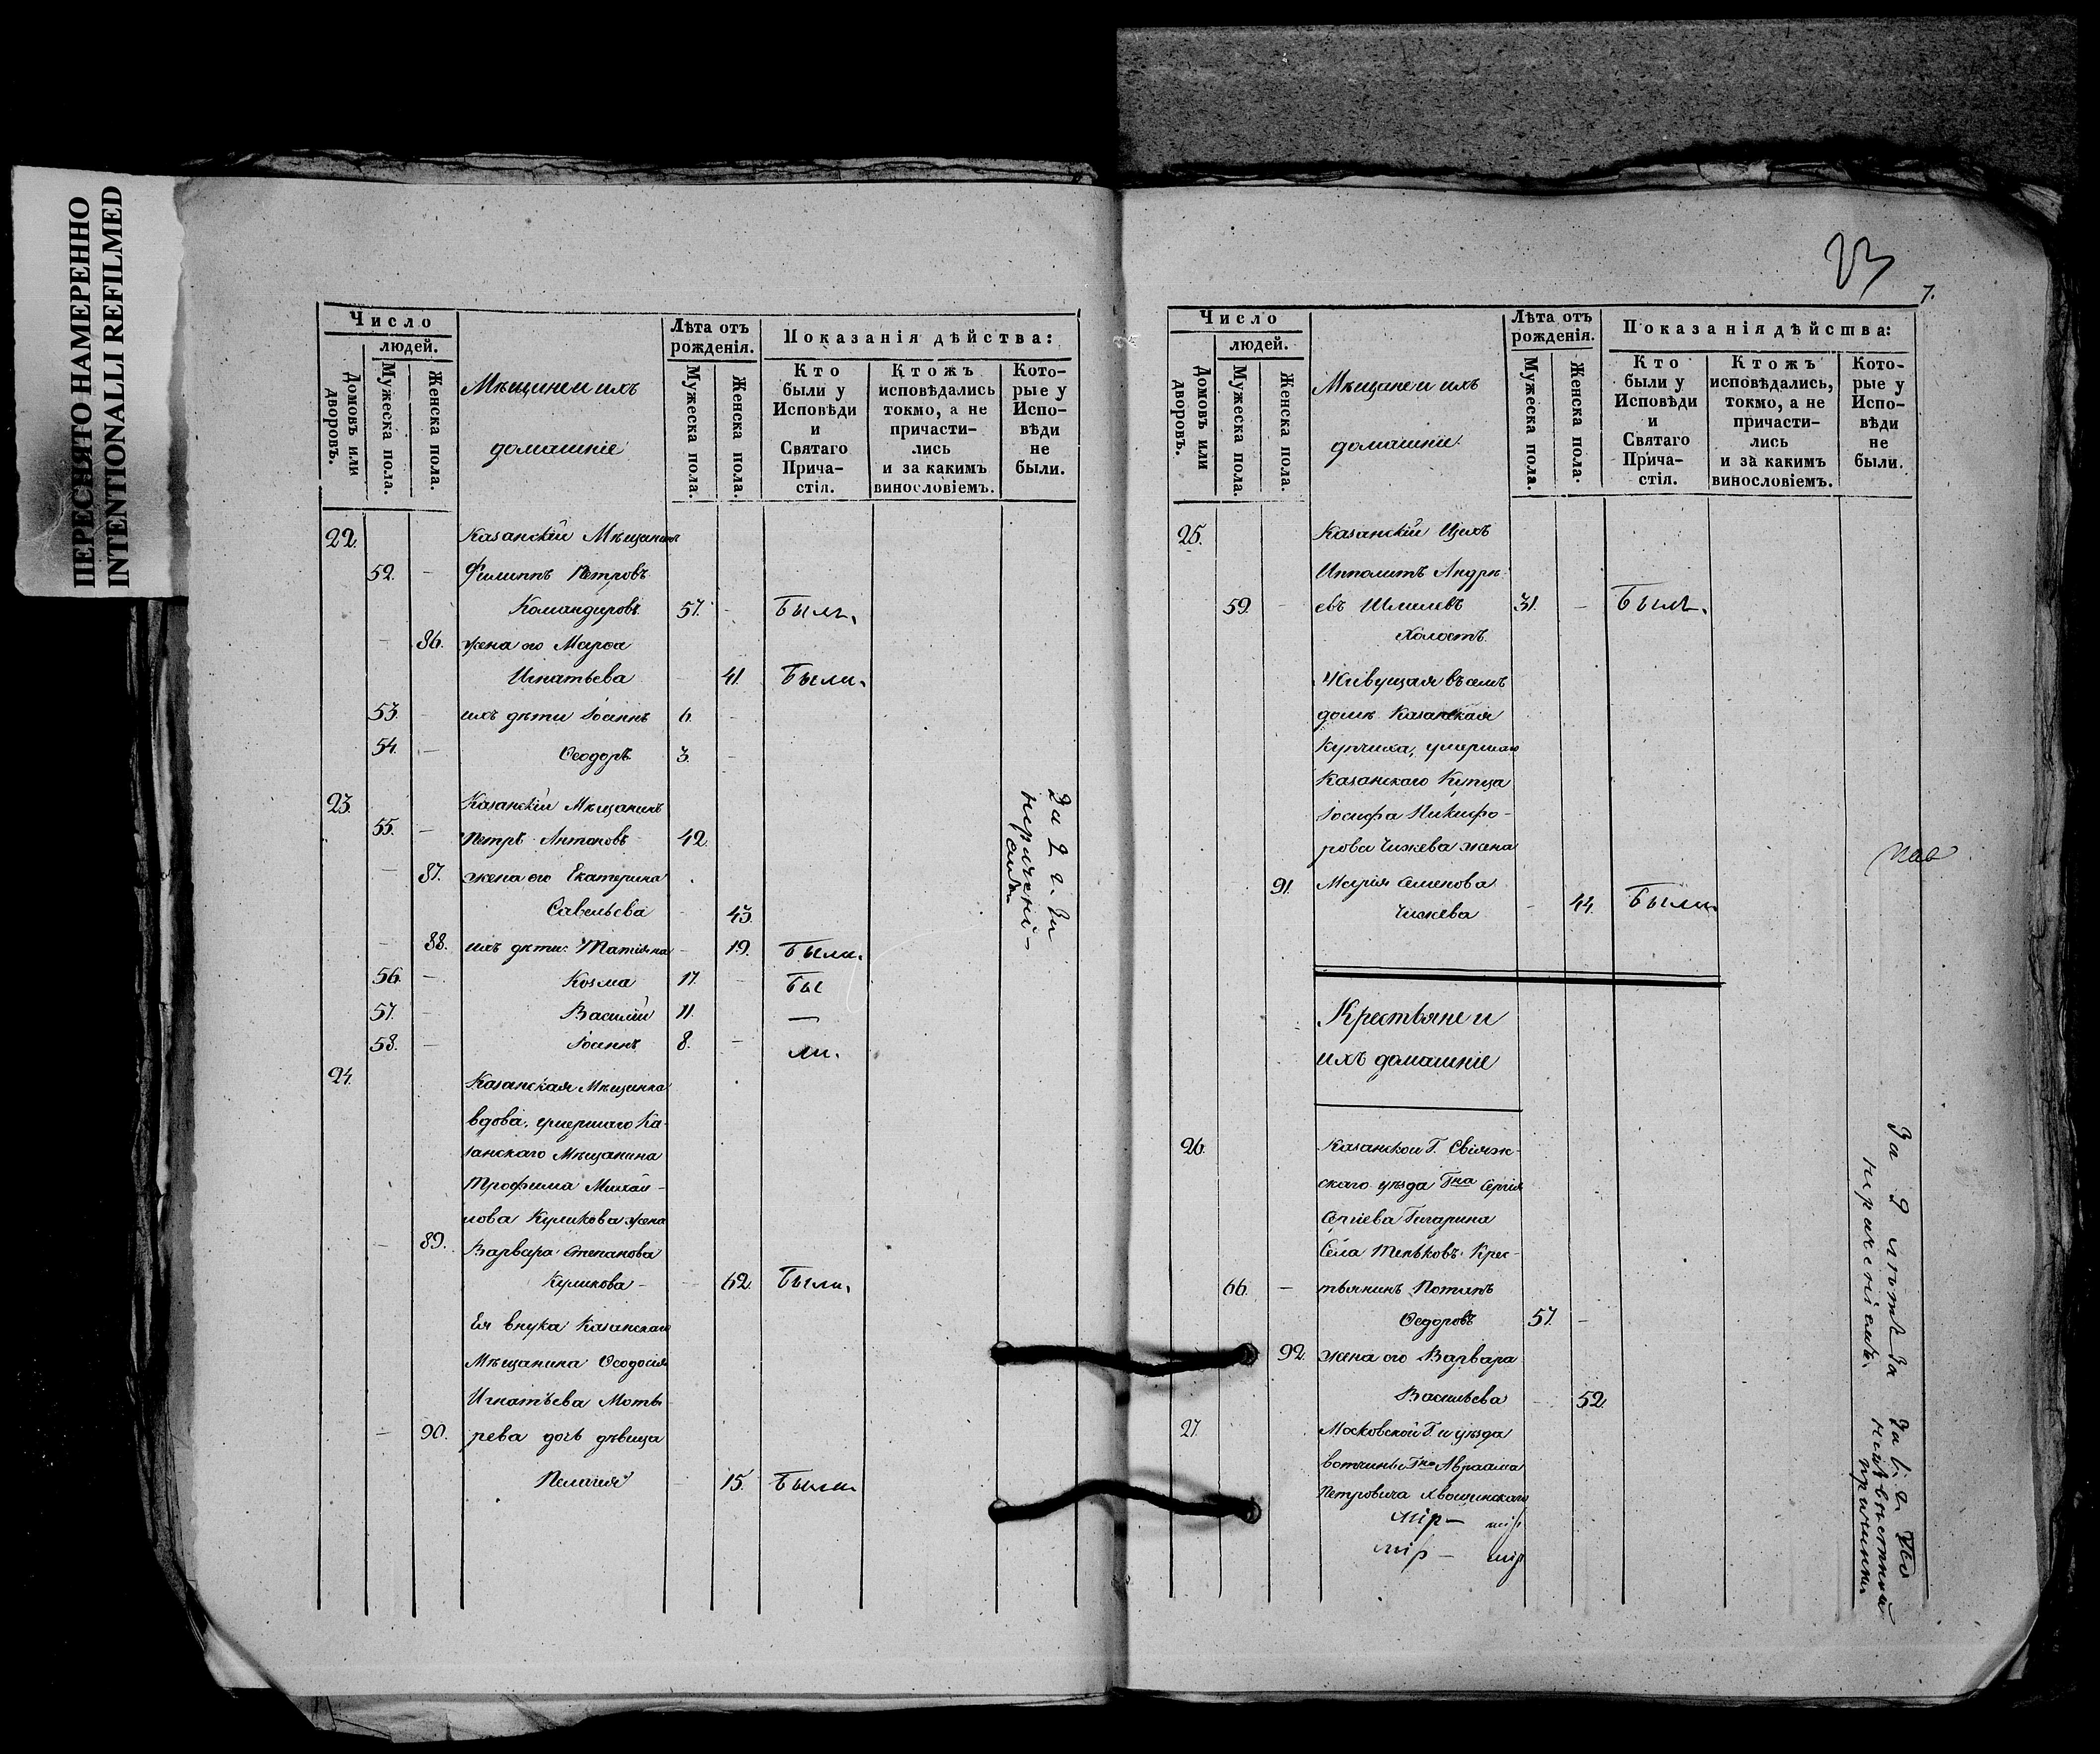 ПЕРЕСНЯТО НАМЕРЕННО
INTENTIONALLI REFILMED
Число
людей.
Домовъ или дворовъ.
Мужеска пола.
Женска пола.
Мѣщане и ихъ
домашніе
Лѣта отъ
рожденія.
Мужеска пола.
Женска пола.
Показанія дѣйства:
Кто
были у
Исповѣди
и
Святаго
Прича-
стія.
Ктожъ
исповѣдались
токмо, а не
причасти-
лись
и за какимъ
винословіемъ.
Кото-
рые у
Испо-
вѣди
не
были.
22. Казанскій Мѣщанинъ
52. – Филиппъ Петровъ
Командировъ 57. – Былъ.
– 86. жена его Марѳа
Игнатьева – 41. Была.
53. – ихъ дѣти Іоаннъ 6. –
54. – Ѳеодоръ 3. –
23. Казанскій Мѣщанинъ
55. – Петръ Антоновъ 42.
– 87. жена его Екатерина
Савельева – 43.
За 2 г. за
нерачені-
емъ
– 88. ихъ дѣти: Татіяна – 19. Была.
56. – Козма 17. – Бы
57. – Василій 11. —
58. – Іоаннъ 8. – ли.
24. Казанская Мѣщанка
вдова, умершаго Ка-
занскаго Мѣщанина
Трофима Михай-
лова Куликова жена
– 89. Варвара Степанова
Куликова – 62. Была.
Ея внука Казанскаго
Мѣщанина Ѳеодосія
Игнатьева
– 90. рева дочь дѣвица
Пелагія – 15. Была
23
7.
Число
людей.
Домовъ или дворовъ.
Мужеска пола.
Женска пола.
Мѣщане и ихъ
домашніе.
Лѣта отъ
рожденія.
Мужеска пола.
Женска пола.
Показанія дѣйства:
Кто
были у
Исповѣди
и
Святаго
Прича-
стія.
Ктожъ
исповѣдались,
токмо, а не
причасти-
лись
и за какимъ
винословіемъ.
Кото-
рые у
Испо-
вѣди
не
были.
25. Казанскій Цехъ
Ипполитъ Андре-
59. – евъ 31. – Былъ.
Холостъ.
Живущая въ семъ
домѣ Казанская
Купчиха, умершаго
Казанскаго Купца
Іосифа Никифо-
рова Чижева жена
91. Марія Семенова
Чижева – 44. Была.
Крестьяне и
ихъ домашніе
26. Казанской Г. Свіяж-
скаго уѣзда Гна Сергія
Сергіева Гагарина
Села Теньковъ Крес-
66. – тьянинъ Потапъ
Ѳедоровъ 57. –
92. жена его Варвара
Васильева – 52.
За 2 лѣта за
нераченіемъ.
27. Московской Г. и уѣзда
вотчины Гна Авраама
Петровича Хвощинскаго
За 1. г. по
неизвѣстной
причинѣ